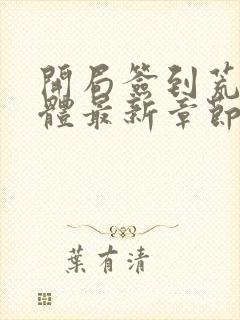 開局簽到荒
體最新章節
葉有清